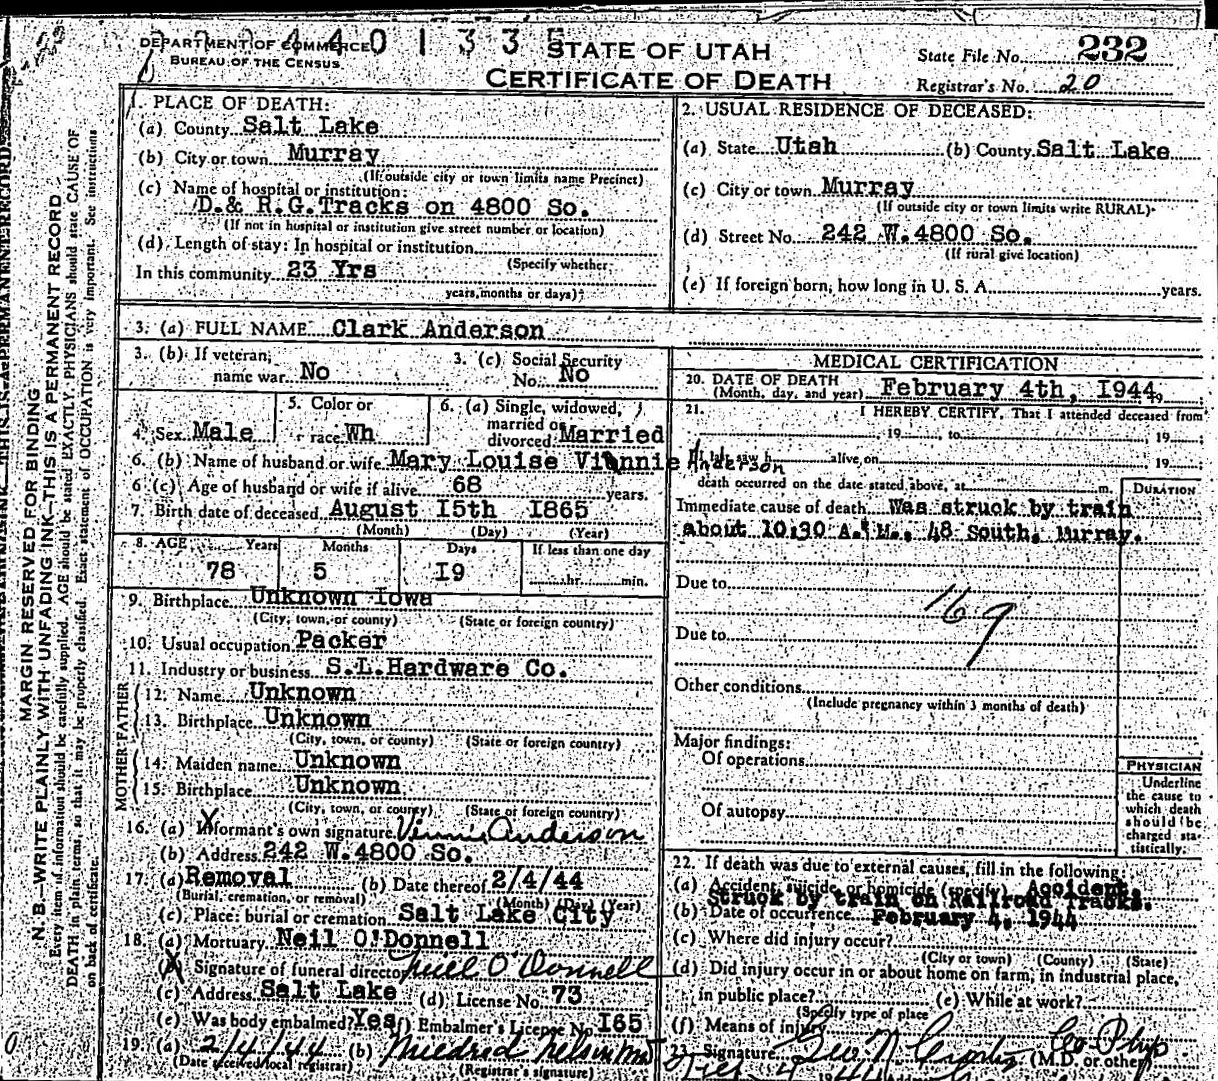 DEPARTMENT OF COMMERCE
4 4 0 1 3 3 5
BUREAU OF THE CENSUS
STATE OF UTAH
CERTIFICATE OF DEATH
State File No. 232
Registrar's No. 20
MARGIN RESERVED FOR BINDING
N. B.—WRITE PLAINLY WITH UNFADING INK—THIS IS A PERMANENT RECORD
Every item of information should be carefully supplied. AGE should be stated EXACTLY. PHYSICIANS should state CAUSE OF
DEATH in plain terms, so that it may be properly classified. Exact statement of OCCUPATION is very important. See instructions
on back of certificate.
1. PLACE OF DEATH:
(a) County Salt Lake
(b) City or town Murray
(If outside city or town limits name Precinct)
(c) Name of hospital or institution:
D.& R.G.Tracks on 4800 So.
(If not in hospital or institution give street number or location)
(d) Length of stay: In hospital or institution
(Specify whether
In this community 23 Yrs
years, months or days)
2. USUAL RESIDENCE OF DECEASED:
(a) State Utah (b) County Salt Lake
(c) City or town Murray
(If outside city or town limits write RURAL)
(d) Street No. 242 W.4800 So.
(If rural give location)
(e) If foreign born, how long in U. S. A. years.
3. (a) FULL NAME Clark Anderson
3. (b) If veteran, name war No
3. (c) Social Security No. No
4. Sex Male
5. Color or race Wh
6. (a) Single, widowed, married or divorced Married
6. (b) Name of husband or wife Mary Louise Viennie Anderson
6. (c) Age of husband or wife if alive 68 years.
7. Birth date of deceased August I5th I865
(Month) (Day) (Year)
8. AGE Years Months Days If less than one day
78 5 I9 hr. min.
9. Birthplace Unknown Iowa
(City, town, or county) (State or foreign country)
10. Usual occupation Packer
11. Industry or business S.L.Hardware Co.
FATHER
12. Name Unknown
13. Birthplace Unknown
(City, town, or county) (State or foreign country)
MOTHER
14. Maiden name Unknown
15. Birthplace Unknown
(City, town, or county) (State or foreign country)
16. (a) Informant's own signature Vennie Anderson
(b) Address 242 W.4800 So.
17. (a) Removal (b) Date thereof 2/4/44
(Burial, cremation, or removal) (Month) (Day) (Year)
(c) Place: burial or cremation Salt Lake City
18. (a) Mortuary Neil O'Donnell
(b) Signature of funeral director Neill O'Donnell
(c) Address Salt Lake (d) License No. 73
(e) Was body embalmed? Yes (f) Embalmer's License No. I65
19. (a) 2/4/44 (b) Mildred Nelson
(Date received local registrar) (Registrar's signature)
MEDICAL CERTIFICATION
20. DATE OF DEATH
(Month, day, and year) February 4th, I944
21. I HEREBY CERTIFY, That I attended deceased from
19 to 19
I last saw h alive on 19
death occurred on the date stated above, at m.
DURATION
Immediate cause of death Was struck by train
about 10:30 A. M., 48 South, Murray.
Due to
169
Due to
Other conditions
(Include pregnancy within 3 months of death)
Major findings:
Of operations
Of autopsy
PHYSICIAN
Underline
the cause to
which death
should be
charged sta-
tistically.
22. If death was due to external causes, fill in the following:
(a) Accident, suicide, or homicide (specify) Accident.
Struck by train on Railroad Tracks.
(b) Date of occurrence February 4, 1944
(c) Where did injury occur?
(City or town) (County) (State)
(d) Did injury occur in or about home on farm, in industrial place,
in public place? (e) While at work?
(Specify type of place
(f) Means of injury
23. Signature Geo N Curtis Co Phys
(M.D. or other)